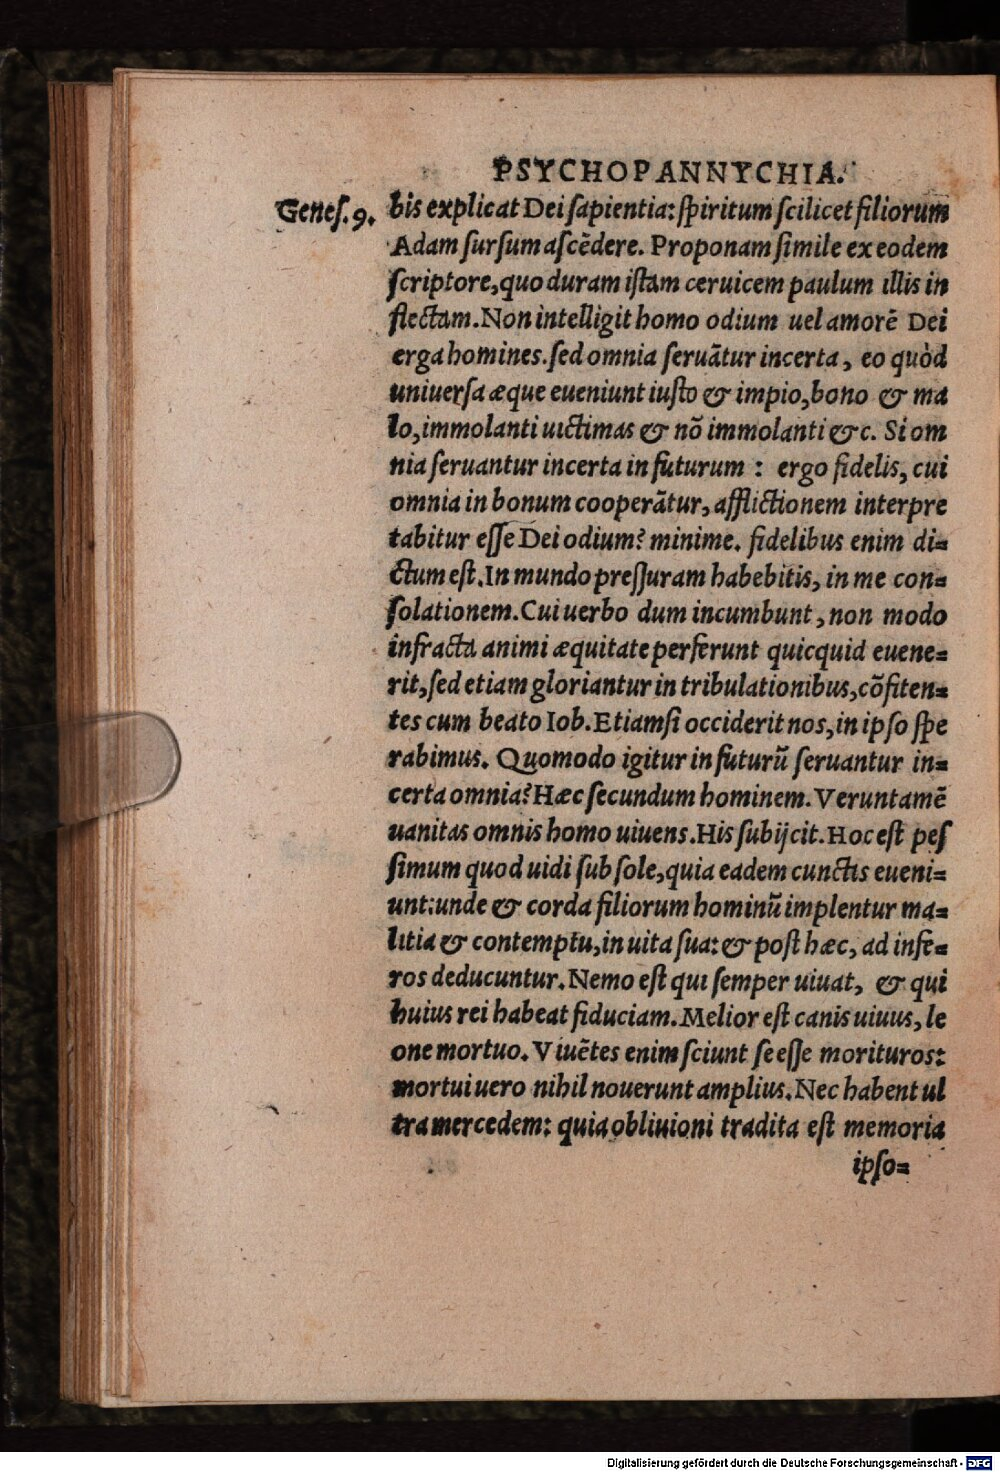 PSYCHOPANNYCHIA.
Geneſ.9. bis explicat Dei ſapientia: ſpiritum ſcilicet filiorum
Adam ſurſum aſcẽdere. Proponam ſimile ex eodem
ſcriptore, quo duram iſtam ceruicem paulum illis in
flectam. Non intelligit homo odium uel amorẽ Dei
erga homines. ſed omnia ſeruãtur incerta, eo quòd
uniuerſa æque eueniunt iuſto & impio, bono & ma
lo, immolanti uictimas & nõ immolanti &c. Si om
nia ſeruantur incerta in futurum : ergo fidelis, cui
omnia in bonum cooperãtur, afflictionem interpre
tabitur eſſe Dei odium? minime. fidelibus enim di=
ctum eſt. In mundo preſſuram habebitis, in me con=
ſolationem. Cui uerbo dum incumbunt, non modo
infracta animi æquitate perferunt quicquid euene=
rit, ſed etiam gloriantur in tribulationibus, cõfiten=
tes cum beato Iob. Etiamſi occiderit nos, in ipſo ſpe
rabimus. Quomodo igitur in futurũ ſeruantur in=
certa omnia? Hæc ſecundum hominem. Veruntamẽ
uanitas omnis homo uiuens. His ſubijcit. Hoc eſt peſ
ſimum quod uidi ſub ſole, quia eadem cunctis eueni=
unt: unde & corda filiorum hominũ implentur ma=
litia & contemptu, in uita ſua: & poſt hæc, ad infe=
ros deducuntur. Nemo eſt qui ſemper uiuat, & qui
huius rei habeat fiduciam. Melior eſt canis uiuus, le
one mortuo. Viuẽtes enim ſciunt ſe eſſe morituros:
mortui uero nihil nouerunt amplius. Nec habent ul
tra mercedem: quia obliuioni tradita eſt memoria
ipſo=
Digitalisierung gefördert durch die Deutsche Forschungsgemeinschaft - DFG